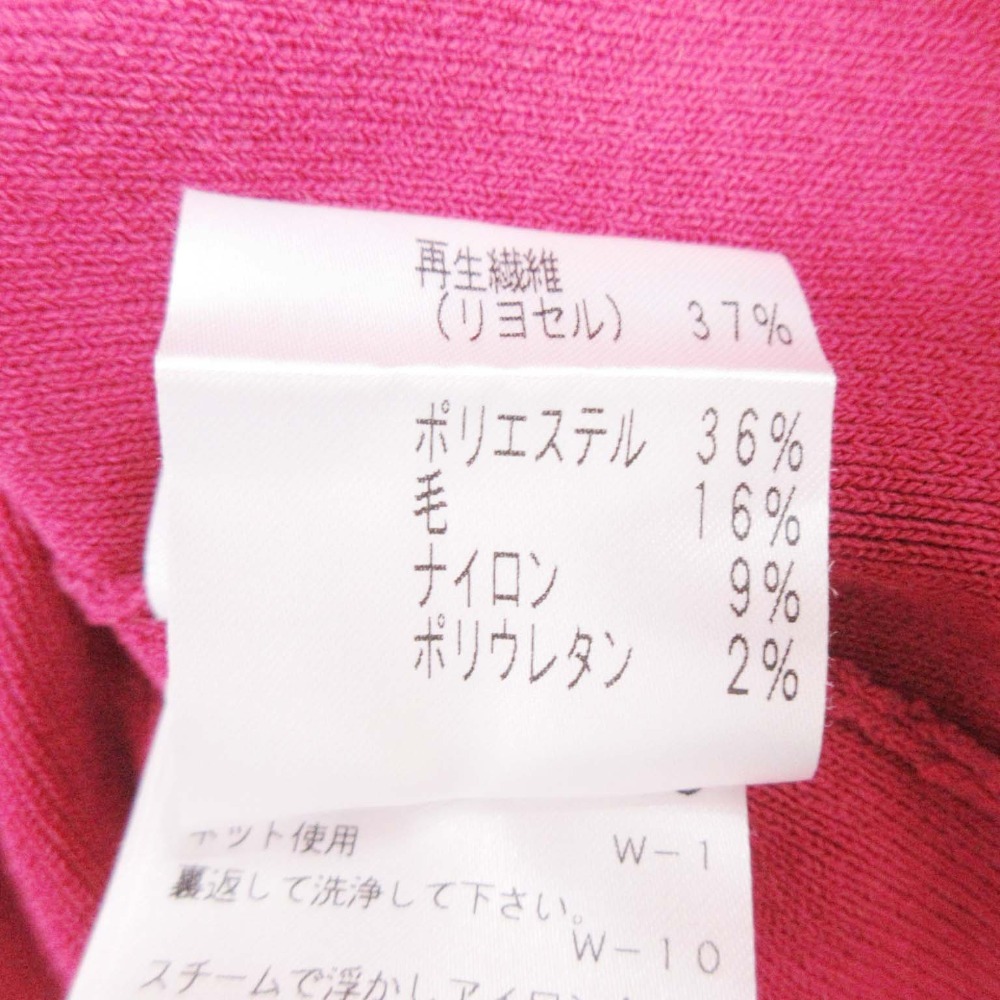 再生繊維
（リヨセル） 37%
ポリエステル 36%
毛 16%
ナイロン 9%
ポリウレタン 2%
ネット使用 W-1
裏返して洗浄して下さい。
W-10
スチームで浮かしアイロン